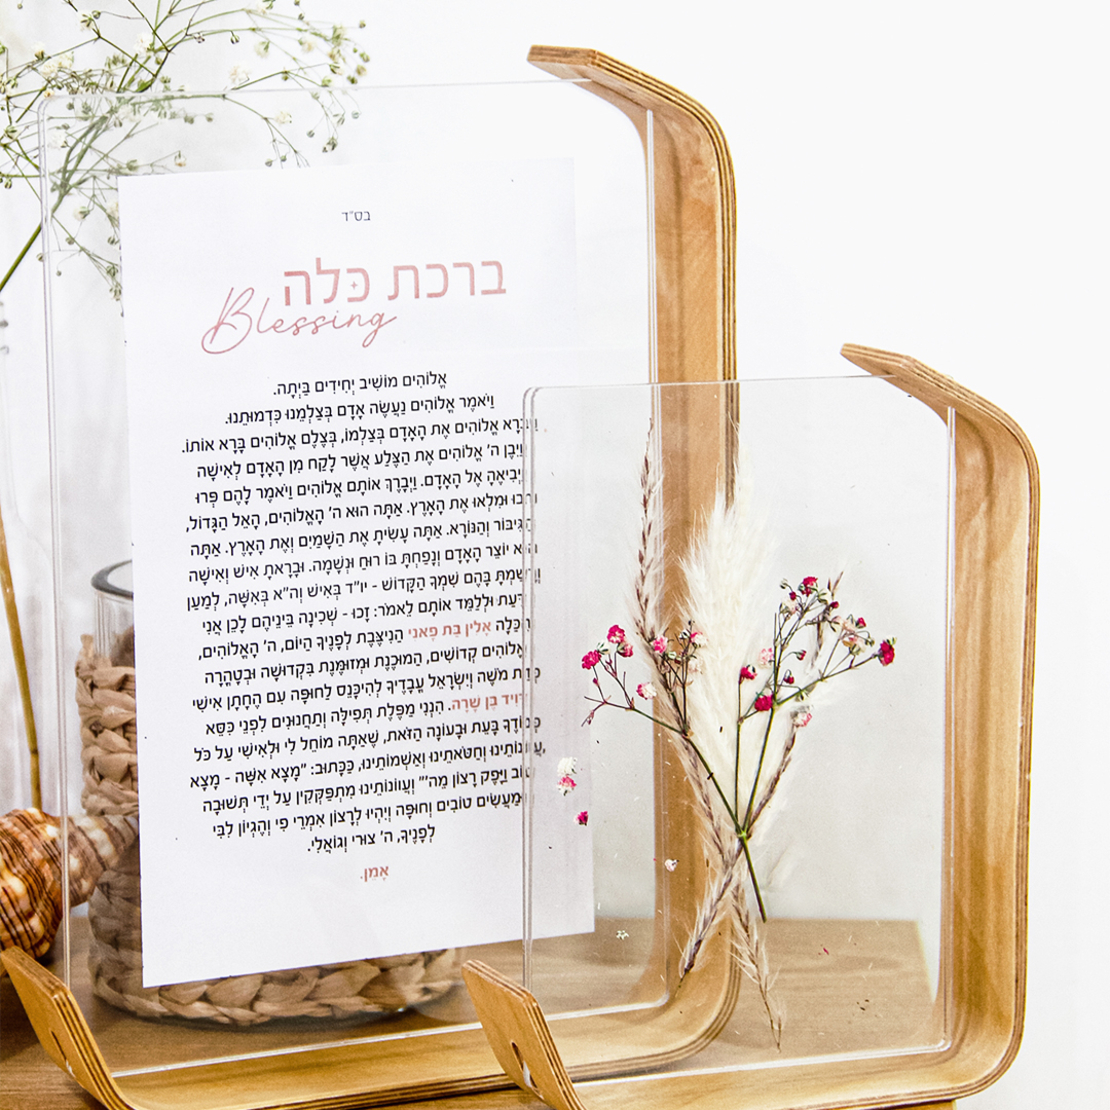 בס"ד
ברכת כלה
Blessing
אֱלוֹהִים מוֹשִׁיב יְחִידִים בַּיְתָה.
וַיֹאמֶר אֱלוֹהִים נַעֲשֶׂה אָדָם בְּצַלְמֵנוּ כִּדְמוּתֵנוּ.
וַיִּבְרָא אֱלוֹהִים אֶת הָאָדָם בְּצַלְמוֹ, בְּצֶלֶם אֱלוֹהִים בָּרָא אוֹתוֹ.
וַיִּבֶן ה' אֱלוֹהִים אֶת הַצֶּלַע אֲשֶׁר לָקַח מִן הָאָדָם לְאִישָׁה
וַיְבִיאֶהָ אֶל הָאָדָם. וַיְבָרֶךְ אוֹתָם אֱלוֹהִים וַיֹאמֶר לָהֶם פְּרוּ
וּרְבוּ וּמִלְאוּ אֶת הָאָרֶץ. אַתָּה הוּא ה' הָאֱלוֹהִים, הָאֵל הַגָּדוֹל,
הַגִּיבּוֹר וְהַנּוֹרָא. אַתָּה עָשִׂיתָ אֶת הַשָּׁמַיִם וְאֶת הָאָרֶץ. אַתָּה
הוּא יוֹצֵר הָאָדָם וְנָפַחְתָּ בּוֹ רוּחַ וּנְשָׁמָה. וּבָרָאתָ אִישׁ וְאִישָׁה
וְרָשַׁמְתָּ בָּהֶם שִׁמְךָ הַקָּדוֹשׁ - יו"ד בְּאִישׁ וְה"א בְּאִשָּׁה, לְמַעַן
דַּעַת וּלְלַמֵּד אוֹתָם לֵאמֹר: זָכוּ - שְׁכִינָה בֵּינֵיהֶם לָכֵן אֲנִי
הַכַּלָּה אֶלִין בַּת פָאנִי הַנִּיצֶּבֶת לְפָנֶיךָ הַיּוֹם, ה' הָאֱלוֹהִים,
אֱלוֹהִים קְדוֹשִׁים, הַמּוּכֶנֶת וּמְזוּמֶּנֶת בִּקְדוּשָּׁה וּבְטָהֳרָה
כְּדַת מֹשֶׁה וְיִשְׂרָאֵל עֲבָדֶיךָ לְהִיכָּנֵס לַחוּפָּה עִם הֶחָתָן אִישִׁי
דָּוִיד בֶּן שָׂרָה. הִנְנִי מַפֶּלֶת תְּפִילָּה וְתַחֲנוּנִים לִפְנֵי כִּסֵּא
כְּבוֹדֶךָ בָּעֵת וּבָעוֹנָה הַזֹּאת, שֶׁאַתָּה מוֹחֵל לִי וּלְאִישִׁי עַל כֹּל
עֲווֹנוֹתֵינוּ וְחַטֹּאתֵינוּ וְאַשְׁמוֹתֵינוּ, כַּכָּתוּב: "מָצָא אִשָּׁה - מָצָא
טוֹב וַיָּפֶק רָצוֹן מֵה'" וַעֲווֹנוֹתֵינוּ מִתְפַּקְּקִין עַל יְדֵי תְּשׁוּבָה
וּמַעֲשִׂים טוֹבִים וְחוּפָּה וְיִהְיוּ לְרָצוֹן אִמְרֵי פִי וְהֶגְיוֹן לִבִּי
לְפָנֶיךָ, ה' צוּרִי וְגוֹאֲלִי.
אָמֵן.